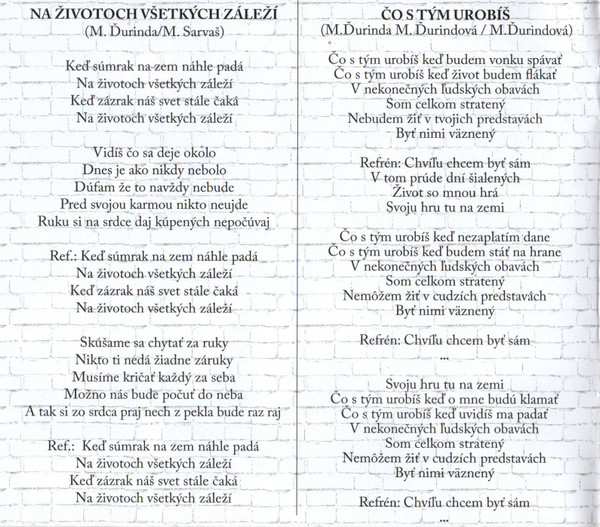 NA ŽIVOTOCH VŠETKÝCH ZÁLEŽÍ
(M. Ďurinda/M. Sarvaš)
Keď súmrak na zem náhle padá
Na životoch všetkých záleží
Keď zázrak náš svet stále čaká
Na životoch všetkých záleží
Vidíš čo sa deje okolo
Dnes je ako nikdy nebolo
Dúfam že to navždy nebude
Pred svojou karmou nikto neujde
Ruku si na srdce daj kúpených nepočúvaj
Ref.: Keď súmrak na zem náhle padá
Na životoch všetkých záleží
Keď zázrak náš svet stále čaká
Na životoch všetkých záleží
Skúšame sa chytať za ruky
Nikto ti nedá žiadne záruky
Musíme kričať každý za seba
Možno nás bude počuť do neba
A tak si zo srdca praj nech z pekla bude raz raj
Ref.: Keď súmrak na zem náhle padá
Na životoch všetkých záleží
Keď zázrak náš svet stále čaká
Na životoch všetkých záleží
ČO S TÝM UROBÍŠ
(M.Ďurinda M. Ďurindová / M.Ďurindová)
Čo s tým urobíš keď budem vonku spávať
Čo s tým urobíš keď život budem flákať
V nekonečných ľudských obavách
Som celkom stratený
Nebudem žiť v tvojich predstavách
Byť nimi väznený
Refrén: Chvíľu chcem byť sám
V tom prúde dní šialených
Život so mnou hrá
Svoju hru tu na zemi
Čo s tým urobíš keď nezaplatím dane
Čo s tým urobíš keď budem stáť na hrane
V nekonečných ľudských obavách
Som celkom stratený
Nemôžem žiť v cudzích predstavách
Byť nimi väznený
Refrén: Chvíľu chcem byť sám
...
Svoju hru tu na zemi
Čo s tým urobíš keď o mne budú klamať
Čo s tým urobíš keď uvidíš ma padať
V nekonečných ľudských obavách
Som celkom stratený
Nemôžem žiť v cudzích predstavách
Byť nimi väznený
Refrén: Chvíľu chcem byť sám
...